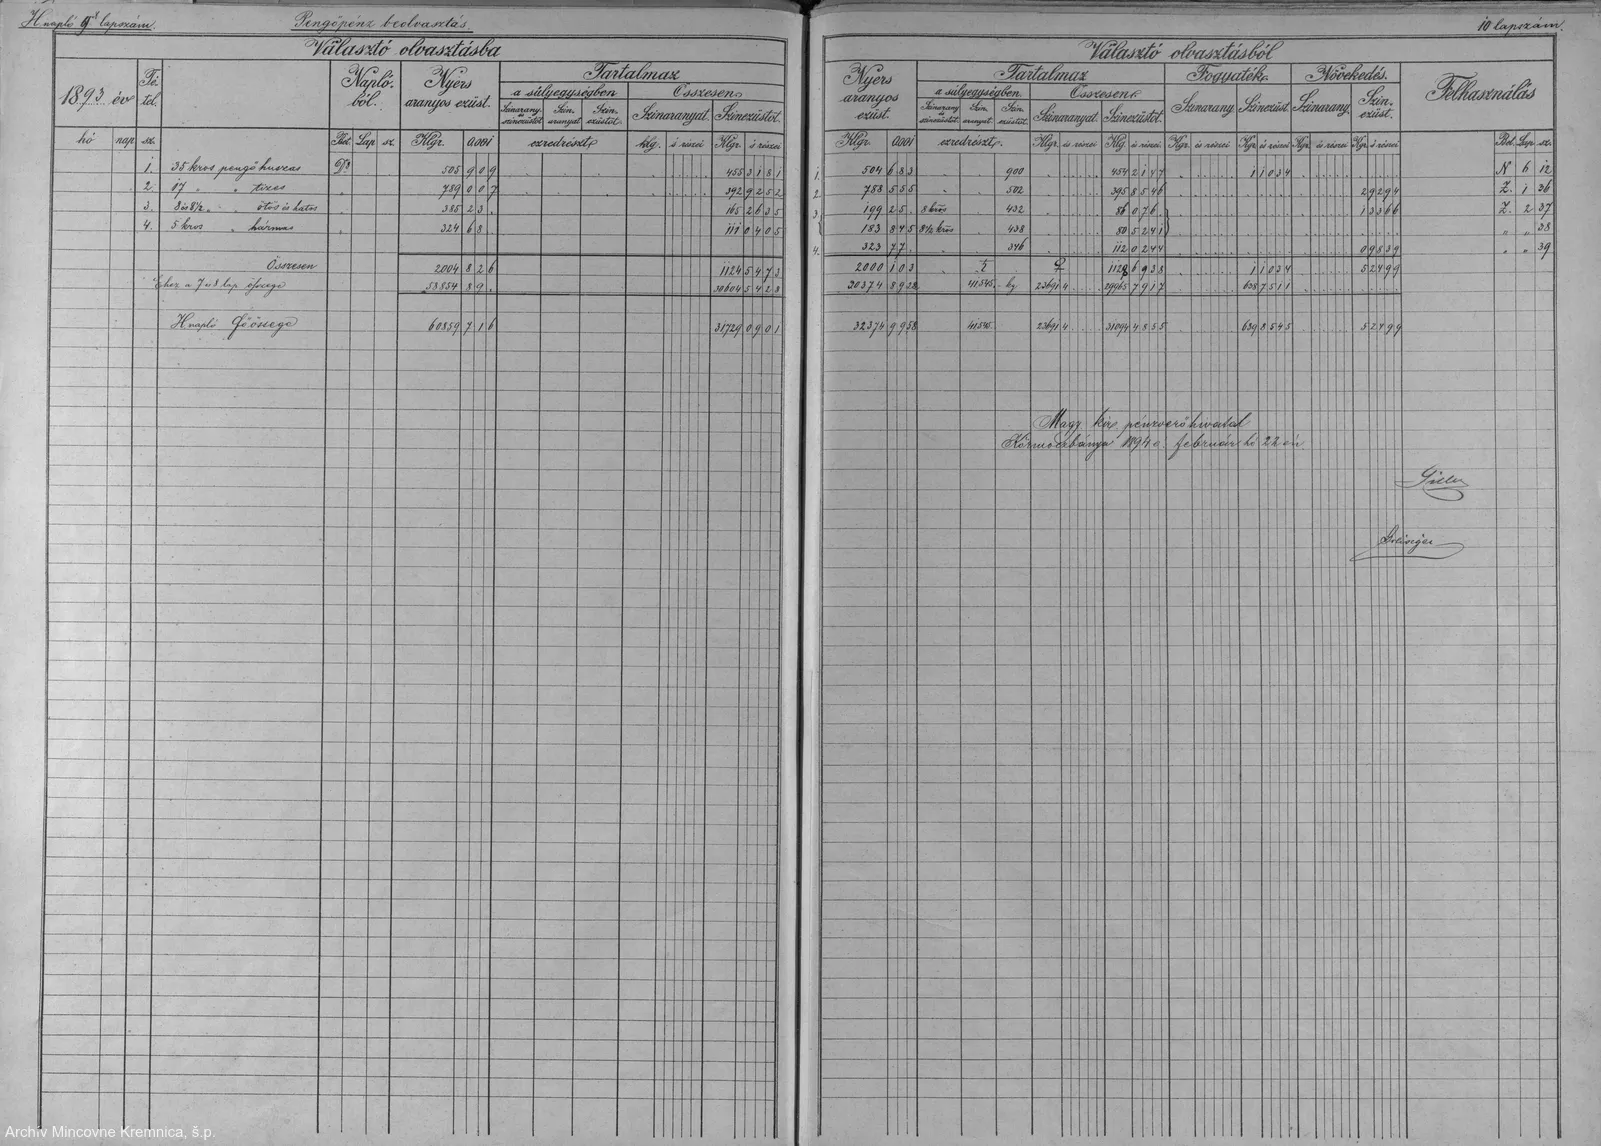 H napló 9ik lapszám.
Pengőpénz beolvasztás.
Választó olvasztásba
1893 év
Té-
tel.
Napló-
ból.
Nyers
aranyos ezüst.
Tartalmaz
a súlyegységben
Összesen
Színarany és színezüstöt
Szín-aranyat
Szín-ezüstöt
Színaranyat.
Színezüstöt.
hó nap sz. Bet. Lap sz. Klgr. 0.001 ezredrészt klg. és részei Klgr. és részei
1. 35 kros pengő huszas D 505 909 455 3181
2. 17 " " tizes 789 007 392 9252
3. 8 és 8½ " " ötös és hatos 385 23. 165 2635
4. 5 kros " hármas 324 68. 111 0405
Összesen 2004 826 1124 5473
Ehez a 7 és 8 lap összege 58854 89. 30604 5428
H napló Főösszege 60859 716 31729 0901
10 lapszám.
Választó olvasztásból
Nyers
aranyos
ezüst.
Tartalmaz
a súlyegységben
Összesen
Színarany és színezüstöt
Szín-aranyat
Szín-ezüstöt
Színaranyat.
Színezüstöt.
Fogyaték
Színarany
Színezüst.
Növekedés.
Színarany.
Szín-
ezüst.
Felhasználás
Klgr. 0.001 ezredrészt Klgr. és részei Klg. és részei Kgr. és részei Kgr. és részei Kgr. és részei Kgr. és részei Bet. Lap sz.
1. 504 683 900 454 2147 1 1034 N 6 12
2. 788 555 502 395 8546 2 9294 Z. 1 36
3. 199 25. 8 kros 432 86 076. 1 3366 Z. 2 37
183 845 8½ kros 438 80 5241 " " 38
4. 323 77. 346 112 0244 0 9839 " " 39
2000 103 1128 6938 1 1034 5 2499
30374 8928 41545 kg 23691 4 29965 7917 638 7511
32374 9958 41545 23691 4 31094 4855 639 8545 5 2499
Magy kir. pénzverőhivatal
Körmöczbánya 1894 é. február hó 22 én
Archív Mincovne Kremnica, š.p.